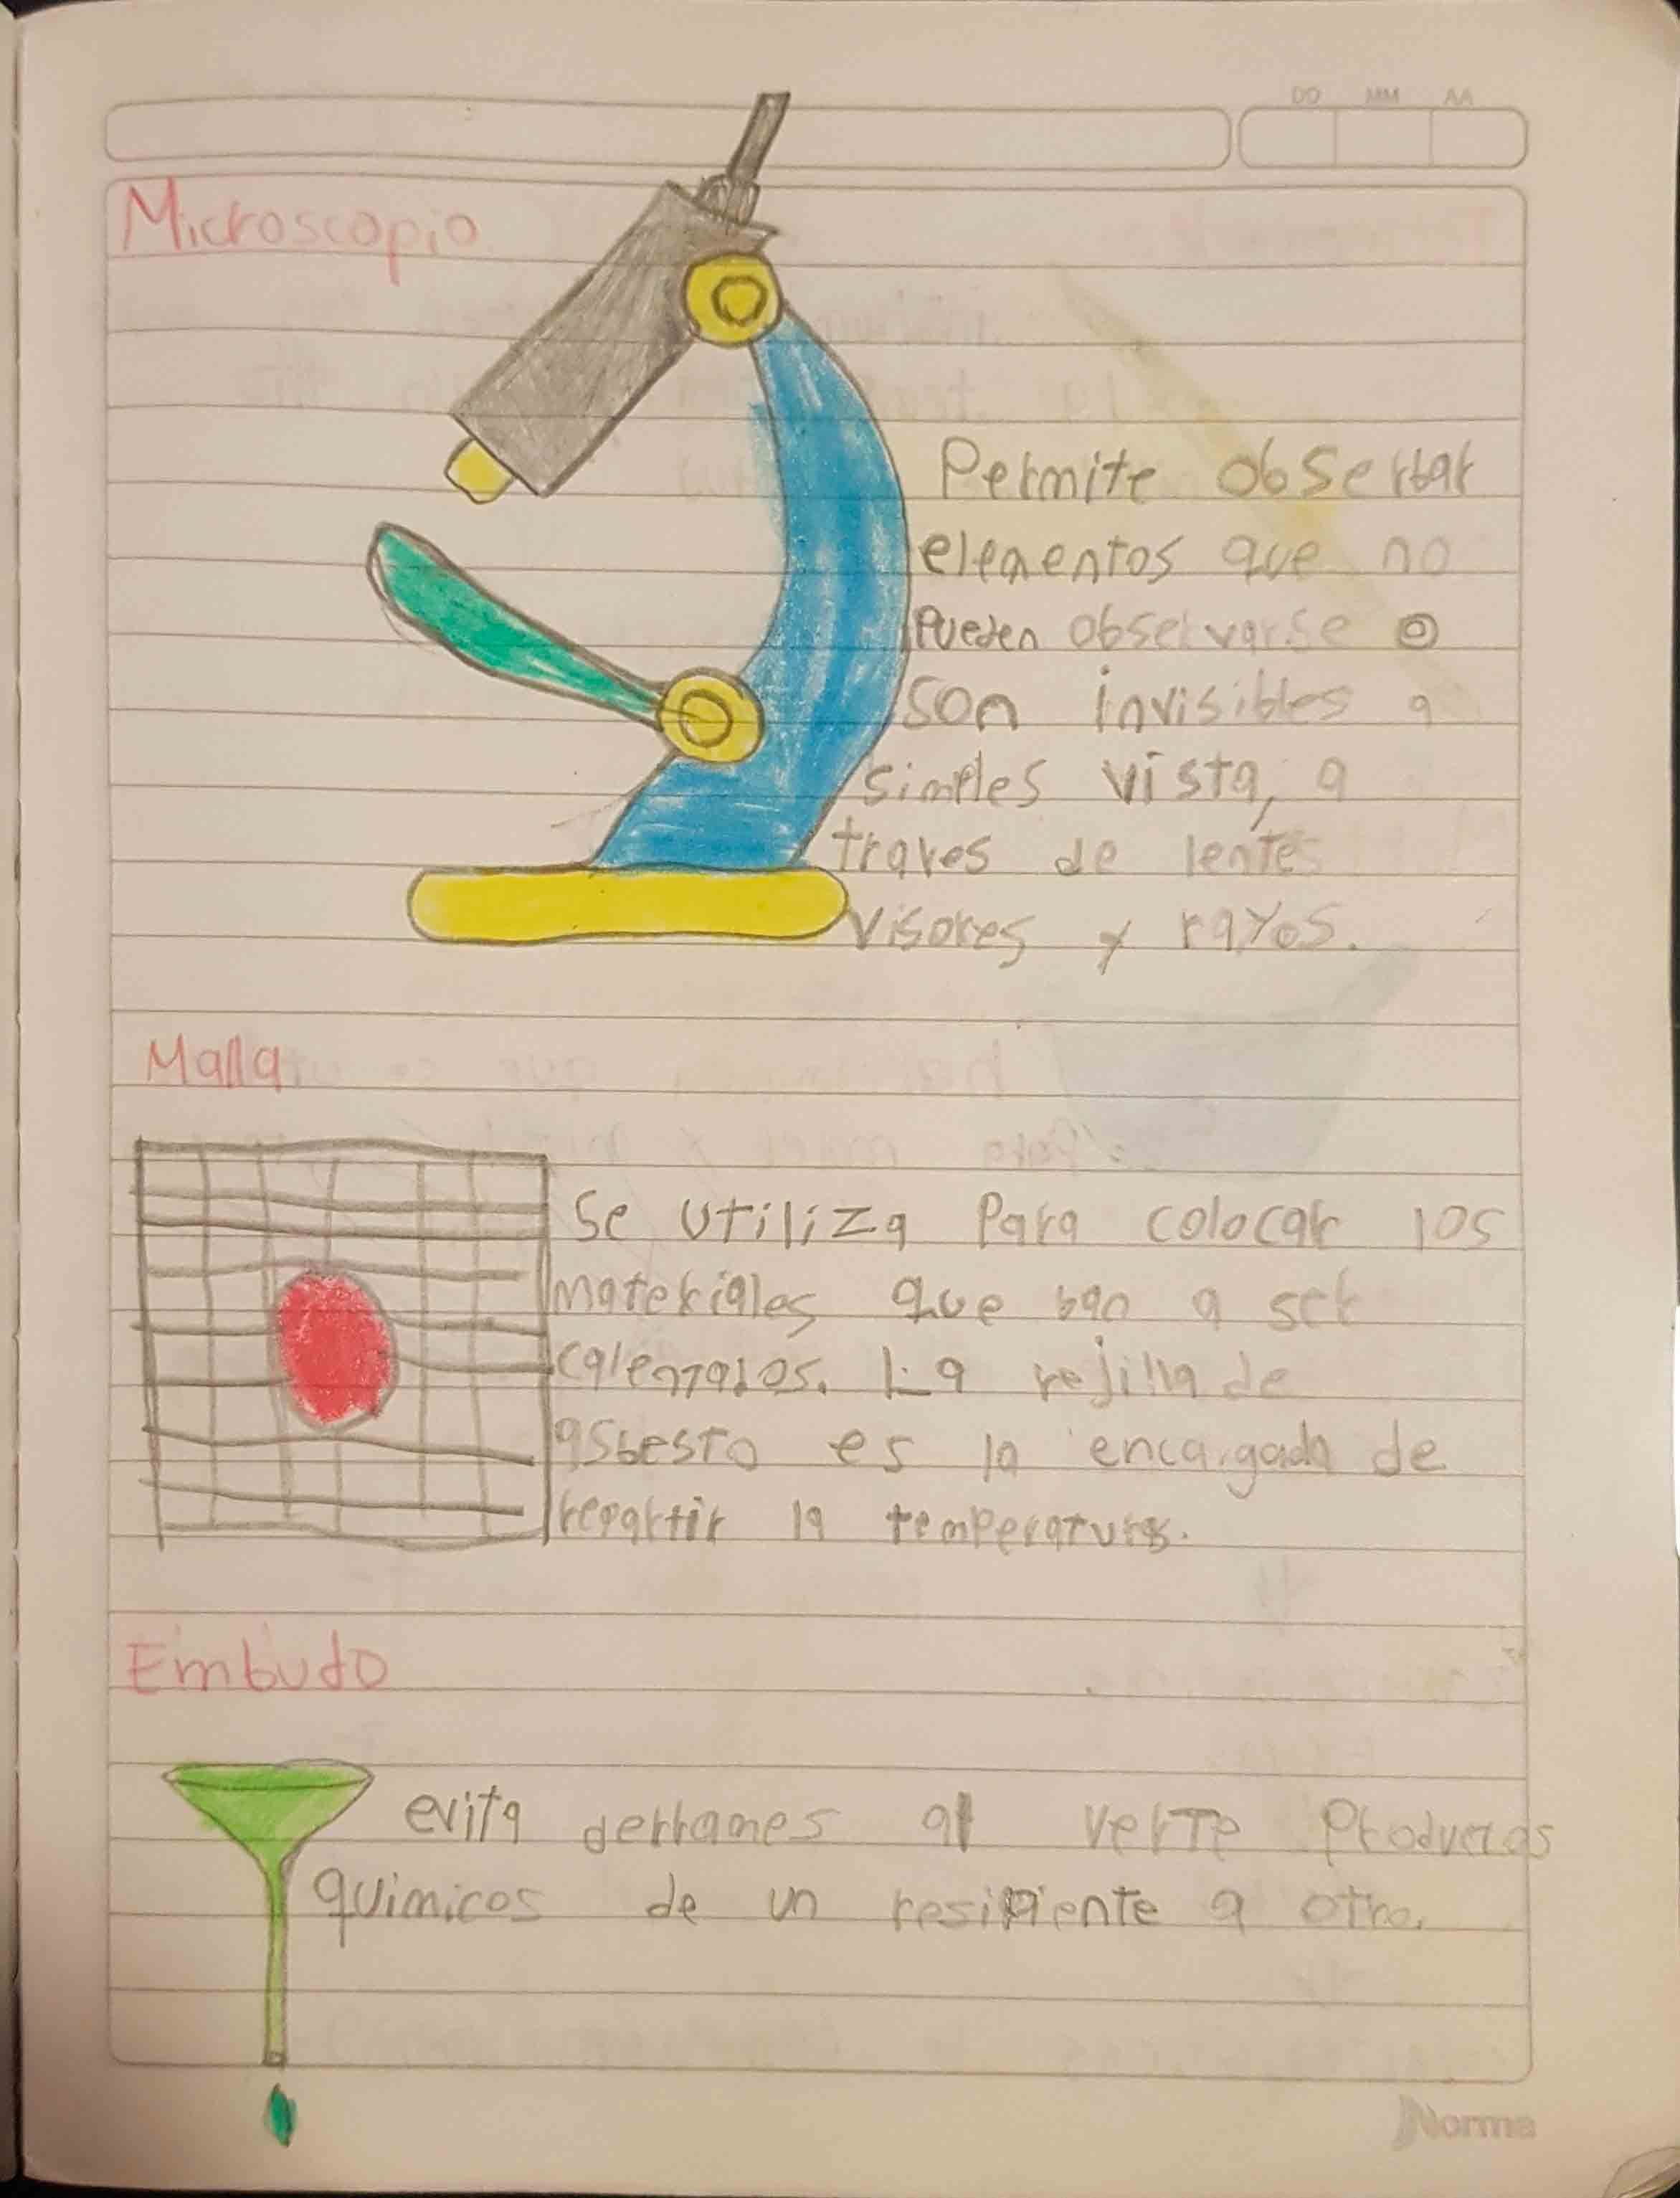 DD MM AA
Microscopio
Permite obserbar
elementos que no
pueden observarse o
son invisibles a
simples vista, a
traves de lentes
visores y rayos.
Malla
Se utiliza para colocar los
materiales que ban a ser
calentados. La rejilla de
asbesto es la encargada de
repartir la temperatura.
Embudo
evita derrames al verte productos
quimicos de un resipiente a otro.
Norma